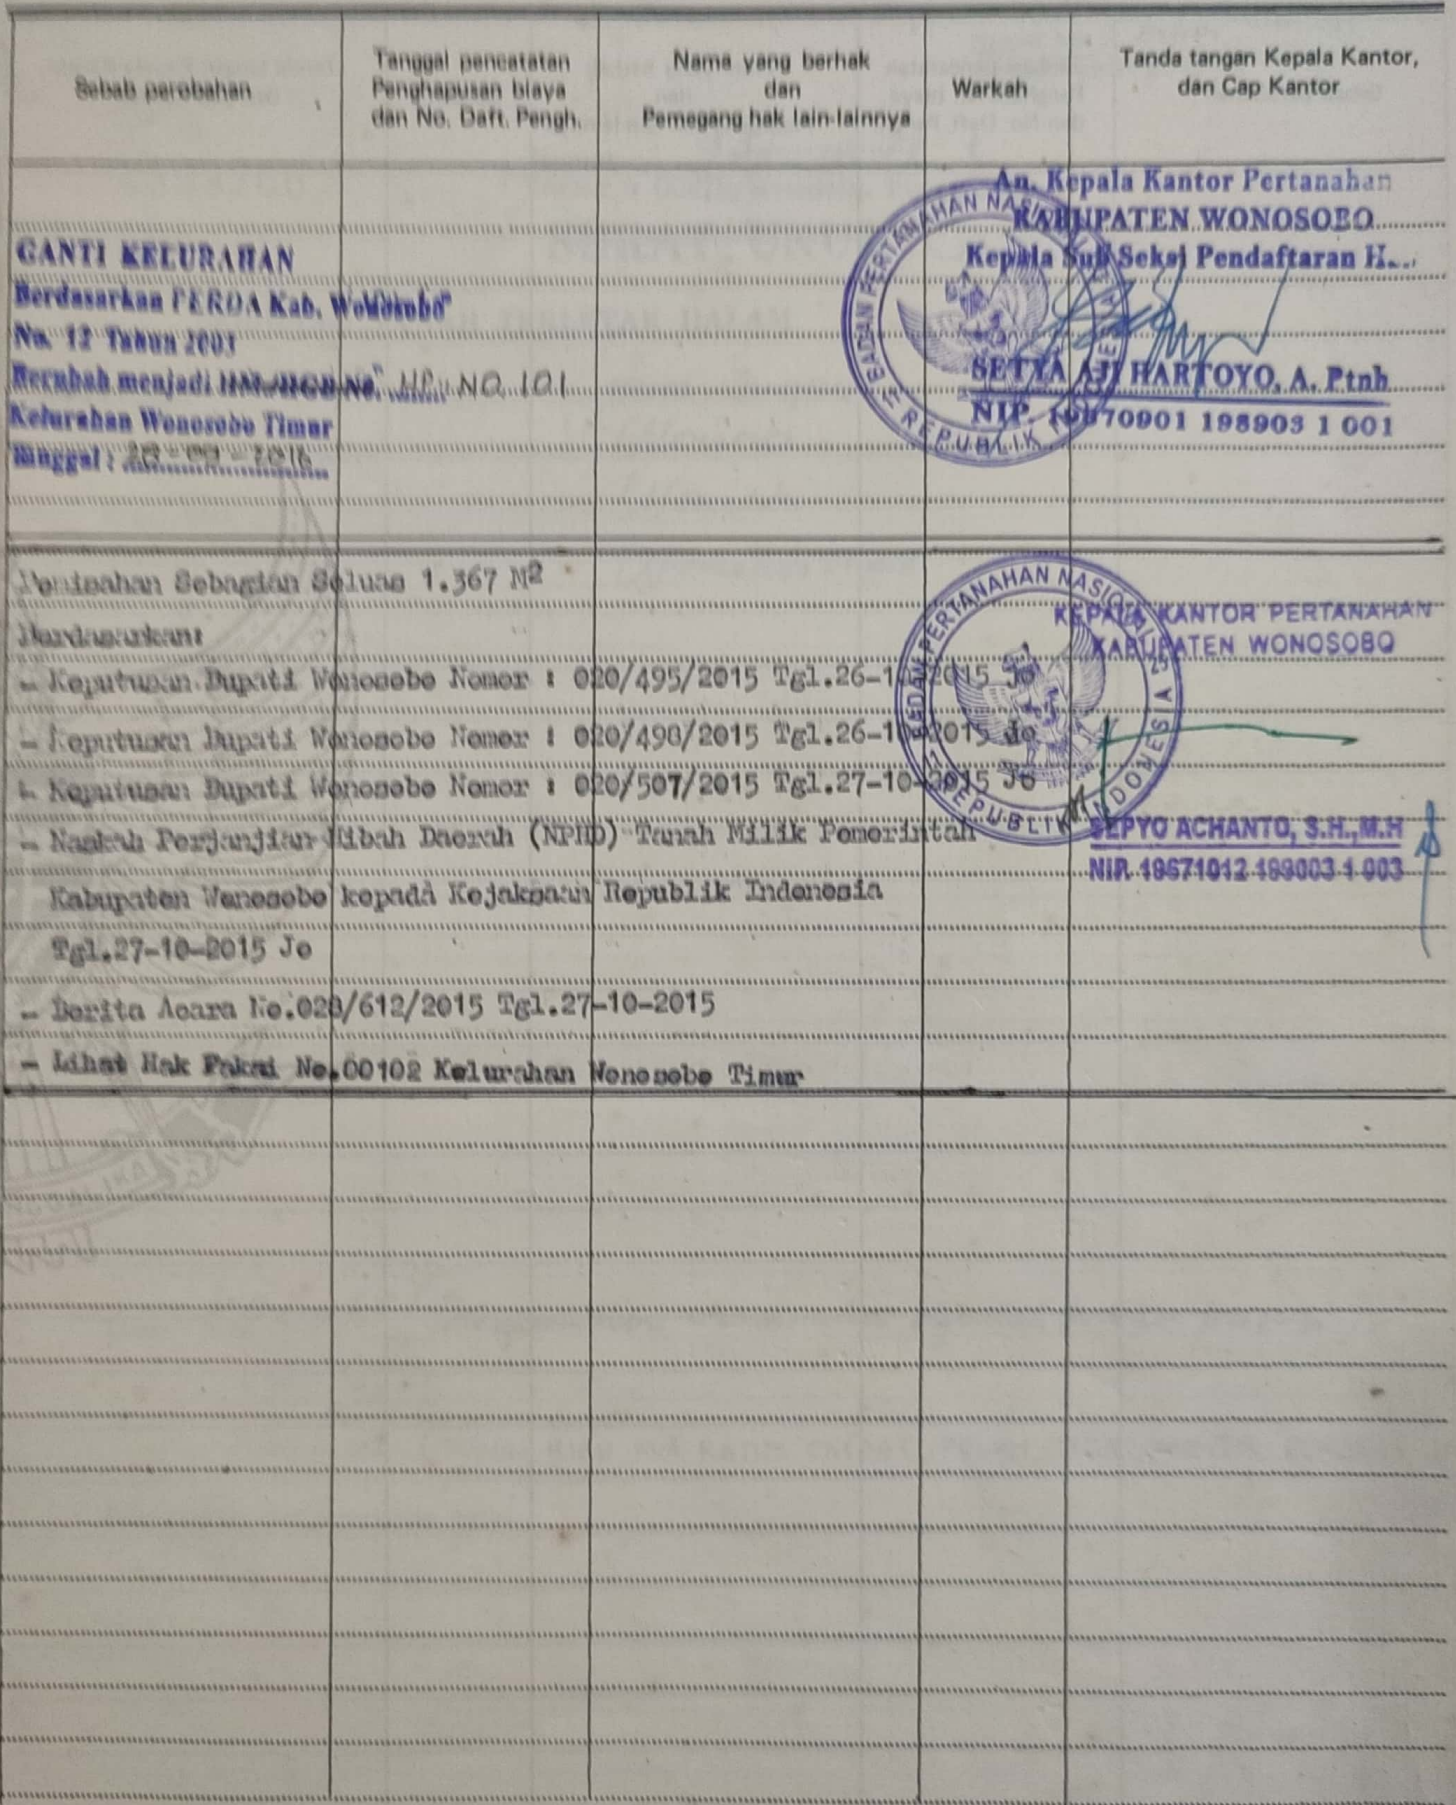 Sebab perobahan
Tanggal pencatatan
Penghapusan biaya
dan No. Daft. Pengh.
Nama yang berhak
dan
Pemegang hak lain-lainnya
Warkah
Tanda tangan Kepala Kantor,
dan Cap Kantor
GANTI KELURAHAN
Berdasarkan PERDA Kab. Wonosobo
No. 12 Tahun 2003
Berubah menjadi HM./HGB No. HP. NO. 101
Kelurahan Wonosobo Timur
Tanggal :
An. Kepala Kantor Pertanahan
KABUPATEN WONOSOBO
Kepala Sub Seksi Pendaftaran H...
BADAN PERTANAHAN NASIONAL
REPUBLIK INDONESIA
SETYA AJI HARTOYO, A. Ptnh
NIP. 19670901 198903 1 001
Pemisahan Sebagian Seluas 1.367 M2
Berdasarkan:
- Keputusan Bupati Wonosobo Nomor : 020/495/2015 Tgl.26-10-2015 Jo
- Keputusan Bupati Wonosobo Nomor : 020/498/2015 Tgl.26-10-2015 Jo
- Keputusan Bupati Wonosobo Nomor : 020/507/2015 Tgl.27-10-2015 Jo
- Naskah Perjanjian Hibah Daerah (NPHD) Tanah Milik Pemerintah
Kabupaten Wonosobo kepada Kejaksaan Republik Indonesia
Tgl.27-10-2015 Jo
- Berita Acara No.020/612/2015 Tgl.27-10-2015
- Lihat Hak Pakai No.00102 Kelurahan Wonosobo Timur
BADAN PERTANAHAN NASIONAL
REPUBLIK INDONESIA
KEPALA KANTOR PERTANAHAN
KABUPATEN WONOSOBO
SEPYO ACHANTO, S.H.,M.H
NIP. 19671012 199003 1 003